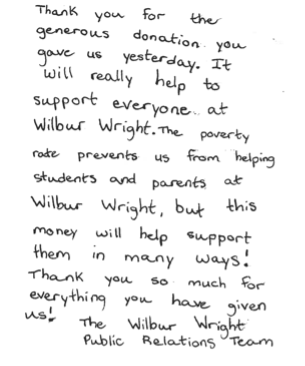 Thank you for the
generous donation you
gave us yesterday. It
will really help to
support everyone at
Wilbur Wright. The poverty
rate prevents us from helping
students and parents at
Wilbur Wright, but this
money will help support
them in many ways!
Thank you so much for
everything you have given
us! The Wilbur Wright
Public Relations Team